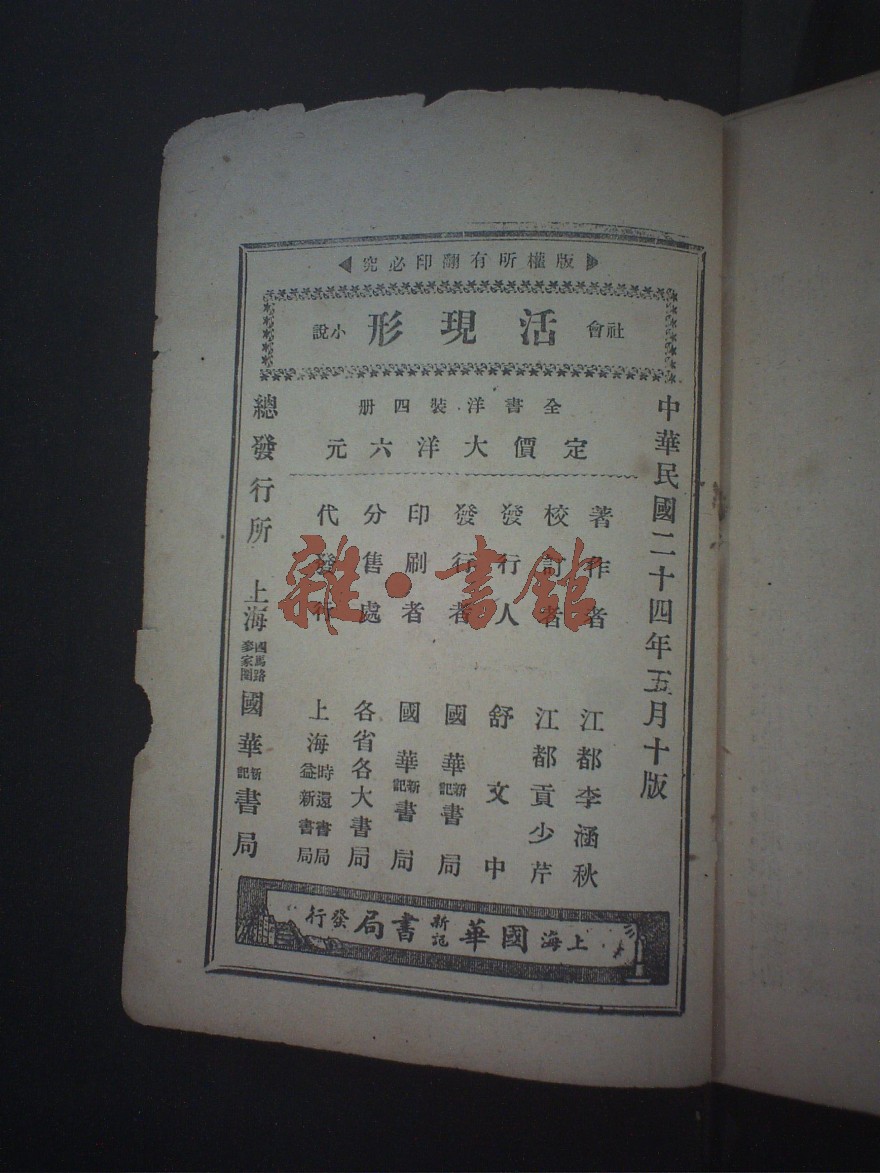 版權所有翻印必究
社會 活現形 小說
全書洋裝四册
定價大洋六元
中華民國二十四年五月十版
著作者 江都李涵秋
校訂者 江都貢少芹
發行人 舒文中
發行者 國華新記書局
印刷者 國華新記書局
分售處 各省各大書局
代發行 上海時還書局 益新書局
總發行所 上海 麥家圈 國華新記書局
上海國華新記書局發行
雜·書館